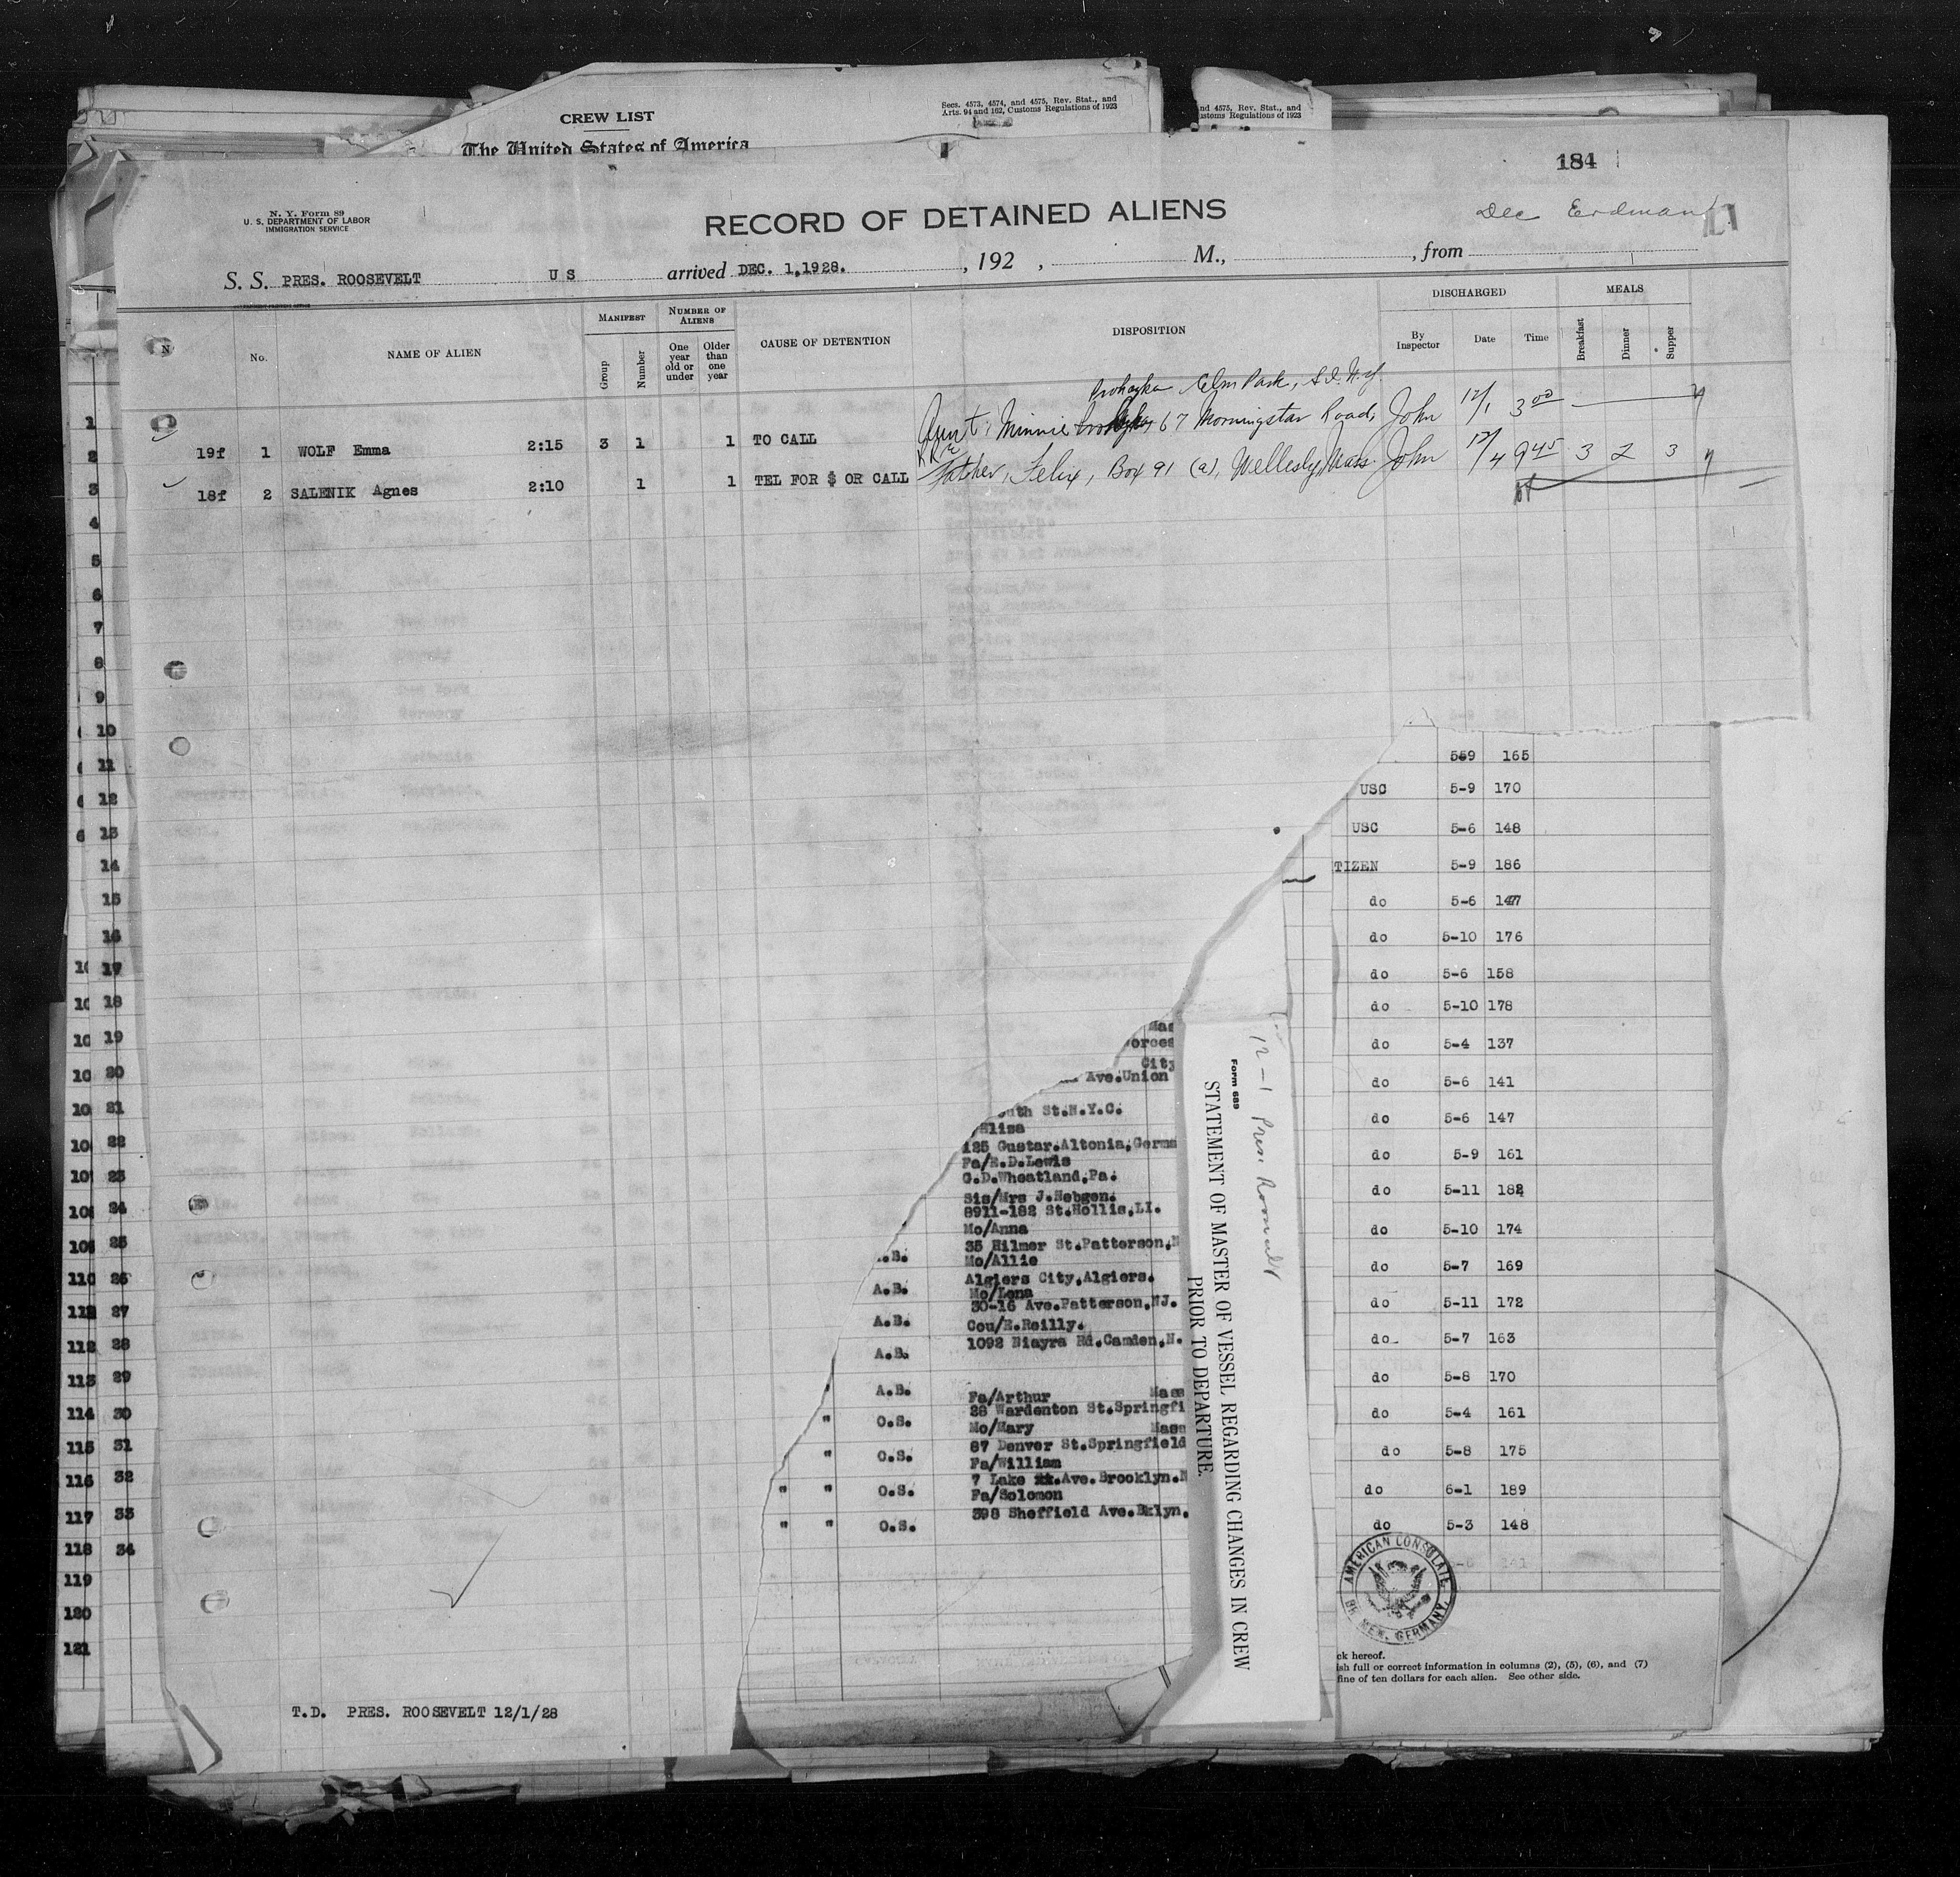 CREW LIST
Secs. 4573, 4574, and 4575, Rev. Stat., and
Arts. 94 and 162, Customs Regulations of 1923
nd 4575, Rev. Stat., and
ustoms Regulations of 1923
The United States of America
184
N. Y. Form 89
U. S. DEPARTMENT OF LABOR
IMMIGRATION SERVICE
RECORD OF DETAINED ALIENS
Dec Erdman
S. S. PRES. ROOSEVELT U S arrived DEC. 1,1928. , 192 , M., , from
No. NAME OF ALIEN MANIFEST Group Number NUMBER OF ALIENS One year old or under Older than one year CAUSE OF DETENTION DISPOSITION DISCHARGED By Inspector Date Time MEALS Breakfast Dinner Supper
Elm Park, S.I. N.Y.
19f 1 WOLF Emma 2:15 3 1 1 TO CALL Aunt, Minnie 67 Morningstar Road, John 12/1 3 00
18f 2 SALENIK Agnes 2:10 1 1 TEL FOR $ OR CALL Father, Felix, Box 91 (a), Wellesly Mass. John 12/4 9 45 3 2 3
1
2
3
4
5
6
7
8
9
10
11
12
13
14
15
16
17
18
19
20
21
22
23
24
25
26
27
28
29
30
31
32
33
34
110
112
112
113
114
115
116
117
118
119
120
121
559 165
USC 5-9 170
USC 5-6 148
TIZEN 5-9 186
do 5-6 147
do 5-10 176
do 5-6 158
do 5-10 178
do 5-4 137
do 5-6 141
do 5-6 147
do 5-9 161
do 5-11 182
do 5-10 174
do 5-7 169
do 5-11 172
do 5-7 163
do 5-8 170
do 5-4 161
do 5-8 175
do 6-1 189
do 5-3 148
Mas
orces
City
Ave.Union
outh St.N.Y.C.
Eliza
125 Gustar.Altonia,Germa
Fa/E.D.Lewis
G.D.Wheatland,Pa.
Sis/Mrs J.Hebgen.
8911-182 St.Hollis,LI.
Mo/Anna
35 Hilmer St.Patterson,N
A.B. Mo/Allie
Algiers City,Algiers.
A.B. Mo/Lena
30-16 Ave.Patterson,NJ.
A.B. Cou/E.Reilly.
1092 Biayra Rd.Camden,N.
A.B.
A.B. Fa/Arthur Mass
28 Wardenton St.Springfi
" O.S. Mo/Mary Mass
87 Denver St.Springfield
" O.S. Fa/William
7 Lake Ave.Brooklyn.N
" " O.S. Fa/Solomon
398 Sheffield Ave.Bklyn.
" " O.S.
12-1 Pres. Roosevelt
Form 689
STATEMENT OF MASTER OF VESSEL REGARDING CHANGES IN CREW
PRIOR TO DEPARTURE.
AMERICAN CONSULATE,
BREMEN, GERMANY.
ck hereof.
ish full or correct information in columns (2), (5), (6), and (7)
fine of ten dollars for each alien. See other side.
T.D. PRES. ROOSEVELT 12/1/28